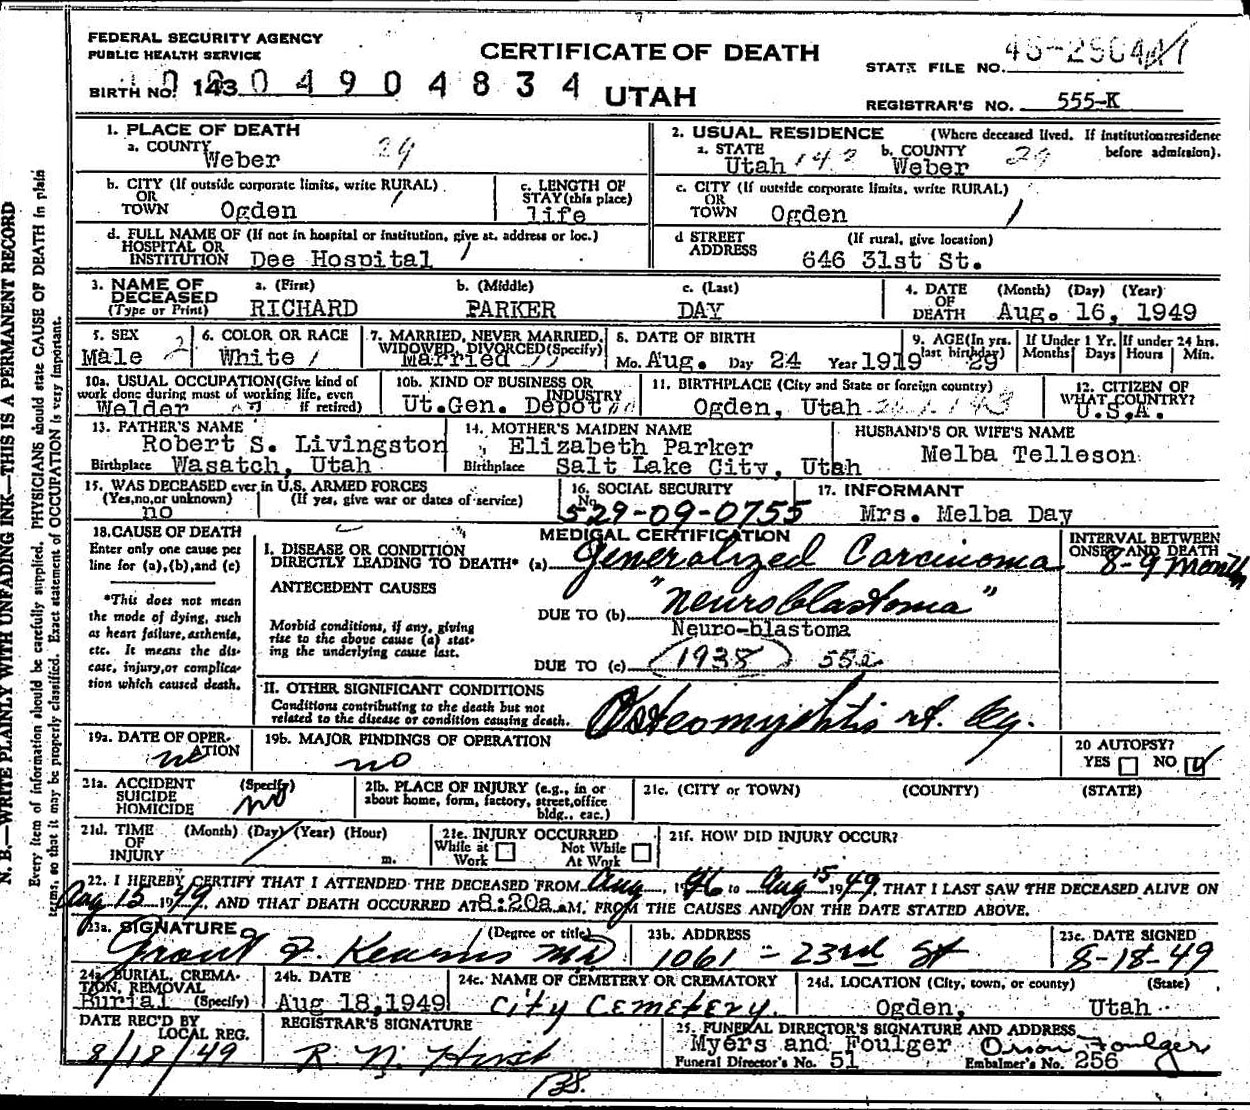 FEDERAL SECURITY AGENCY
PUBLIC HEALTH SERVICE
CERTIFICATE OF DEATH
STATE FILE NO.
BIRTH NO. 143 0 4 9 0 4 8 3 4
UTAH
REGISTRAR'S NO. 555-K
1. PLACE OF DEATH
a. COUNTY
Weber 29
2. USUAL RESIDENCE (Where deceased lived. If institution:residence before admission).
a. STATE b. COUNTY
Utah Weber 29
b. CITY (If outside corporate limits, write RURAL)
OR
TOWN Ogden
c. LENGTH OF
STAY (this place)
life
c. CITY (If outside corporate limits, write RURAL)
OR
TOWN Ogden
d. FULL NAME OF (If not in hospital or institution, give st. address or loc.)
HOSPITAL OR
INSTITUTION Dee Hospital
d STREET (If rural, give location)
ADDRESS 646 31st St.
3. NAME OF a. (First) b. (Middle) c. (Last)
DECEASED
(Type or Print) RICHARD PARKER DAY
4. DATE (Month) (Day) (Year)
OF
DEATH Aug. 16, 1949
5. SEX
Male 2
6. COLOR OR RACE
White
7. MARRIED, NEVER MARRIED,
WIDOWED, DIVORCED(Specify)
Married
8. DATE OF BIRTH
Mo. Aug. Day 24 Year 1919
9. AGE(In yrs. last birthday)
29
If Under 1 Yr.
Months Days
If under 24 hrs.
Hours Min.
10a. USUAL OCCUPATION(Give kind of
work done during most of working life, even
if retired)
Welder
10b. KIND OF BUSINESS OR
INDUSTRY
Ut.Gen. Depot
11. BIRTHPLACE (City and State or foreign country)
Ogden, Utah
12. CITIZEN OF
WHAT COUNTRY?
U.S.A.
13. FATHER'S NAME
Robert S. Livingston
Birthplace Wasatch, Utah
14. MOTHER'S MAIDEN NAME
Elizabeth Parker
Birthplace Salt Lake City, Utah
HUSBAND'S OR WIFE'S NAME
Melba Telleson
15. WAS DECEASED ever in U.S. ARMED FORCES
(Yes,no,or unknown) (If yes, give war or dates of service)
no
16. SOCIAL SECURITY
No.
529-09-0755
17. INFORMANT
Mrs. Melba Day
18. CAUSE OF DEATH
Enter only one cause per
line for (a),(b),and (c)
*This does not mean
the mode of dying, such
as heart failure, asthenia,
etc. It means the dis-
ease, injury,or complica-
tion which caused death.
MEDICAL CERTIFICATION
INTERVAL BETWEEN
ONSET AND DEATH
I. DISEASE OR CONDITION
DIRECTLY LEADING TO DEATH* (a) Generalized Carcinoma 8-9 month
ANTECEDENT CAUSES
Morbid conditions, if any, giving
rise to the above cause (a) stat-
ing the underlying cause last.
DUE TO (b) "neuroblastoma"
Neuro-blastoma
DUE TO (c) (1938)
II. OTHER SIGNIFICANT CONDITIONS
Conditions contributing to the death but not
related to the disease or condition causing death.
Osteomyelitis rt. leg.
19a. DATE OF OPER-
ATION
no
19b. MAJOR FINDINGS OF OPERATION
no
20 AUTOPSY?
YES NO
21a. ACCIDENT (Specify)
SUICIDE
HOMICIDE
no
21b. PLACE OF INJURY (e.g., in or
about home, form, factory, street,office
bldg., eac.)
21c. (CITY or TOWN) (COUNTY) (STATE)
21d. TIME (Month) (Day) (Year) (Hour)
OF
INJURY m.
21e. INJURY OCCURRED
While at Not While
Work At Work
21f. HOW DID INJURY OCCUR?
22. I HEREBY CERTIFY THAT I ATTENDED THE DECEASED FROM Aug, 1946 to Aug 15 1949, THAT I LAST SAW THE DECEASED ALIVE ON
Aug 15 1949. AND THAT DEATH OCCURRED AT 8:20a.M. FROM THE CAUSES AND ON THE DATE STATED ABOVE.
23a. SIGNATURE (Degree or title)
Grant F. Kearns MD
23b. ADDRESS
1061 - 23rd St
23c. DATE SIGNED
8-18-49
24a BURIAL, CREMA-
TION, REMOVAL
Burial (Specify)
24b. DATE
Aug 18,1949
24c. NAME OF CEMETERY OR CREMATORY
City Cemetery.
24d. LOCATION (City, town, or county) (State)
Ogden, Utah
DATE REC'D BY
LOCAL REG.
8/18/49
REGISTRAR'S SIGNATURE
25. FUNERAL DIRECTOR'S SIGNATURE AND ADDRESS
Myers and Foulger Orson Foulger
Funeral Director's No. 51 Embalmer's No. 256
N. B.—WRITE PLAINLY WITH UNFADING INK—THIS IS A PERMANENT RECORD
Every item of information should be carefully supplied. PHYSICIANS should state CAUSE OF DEATH in plain
terms, so that it may be properly classified. Exact statement of OCCUPATION is very important.